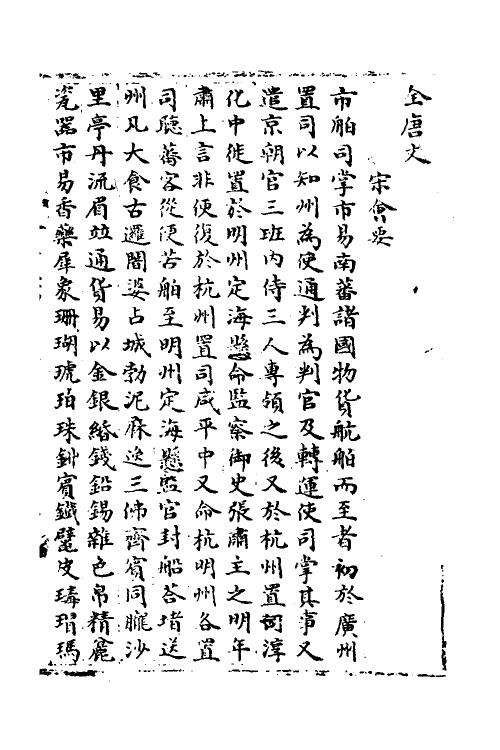 全唐文
宋會要
市舶司掌市易南蕃諸國物貨航舶而至者初於廣州
置司以知州為使通判為判官及轉運使司掌其事又
遣京朝官三班內侍三人專領之後又於杭州置司淳
化中徙置於明州定海縣命監察御史張肅主之明年
肅上言非便復於杭州置司咸平中又命杭明州各置
司聽蕃客從便若舶至明州定海縣監官封船荅堵送
州凡大食古邏闍婆占城勃泥麻逸三佛齊賓同朧沙
里亭丹流眉並通貨易以金銀緡錢鉛錫雜色帛精麄
瓷器市易香藥犀象珊瑚琥珀珠鈃賓鐵鼊皮瑇瑁瑪